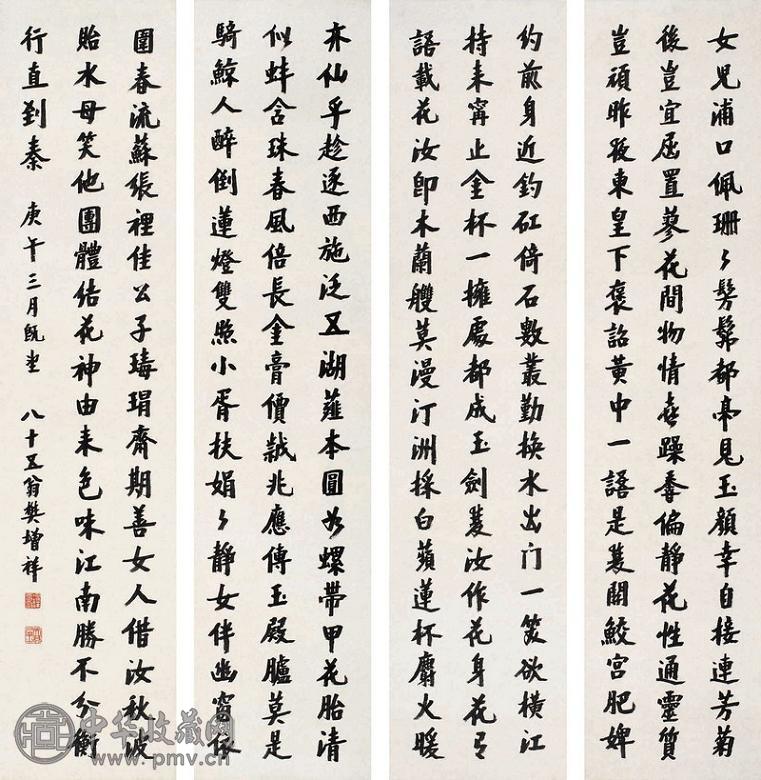 女兒浦口佩珊々髣髴都亭見玉顏幸自接連芳菊
後豈宜屈置蓼花間物情喜躁春偏靜花性通靈質
豈頑昨夜東皇下褒詔黃中一語是蕟關鮫宮肥婢
約前身近釣矼倚石數叢勤換水出门一笑欲橫江
持來甯止金杯一擁處都成玉劍雙汝作花身花有
語載花汝即木蘭艭莫漫汀洲採白蘋蓮杯麝火暖
亦仙乎趁逐西施泛五湖薤本圓如螺帶甲花胎清
似蚌含珠春風倍長金膏價瑞兆應傳玉殿臚莫是
騎鯨人醉倒蓮燈雙照小胥扶娟々靜女伴幽窗依
圍春流蘇張裡佳公子瑇瑁齋期善女人借汝秋波
貽水母笑他團體結花神由來色味江南勝不分衡
行直到秦 庚午三月既望 八十五翁樊增祥
中华收藏网
www.pmv.cn